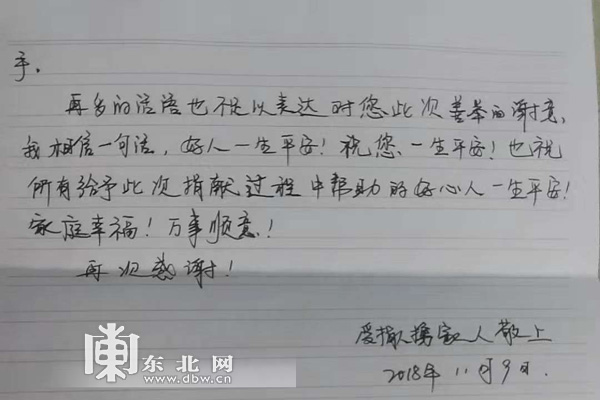 手。
再多的话语也不足以表达对您此次善举的谢意,
我相信一句话,好人一生平安!祝您、一生平安!也祝
所有给予此次捐献过程中帮助的好心人一生平安!
家庭幸福!万事顺意!
再次感谢!
人敬上
2018年11月9日.
东北网
www.dbw.cn